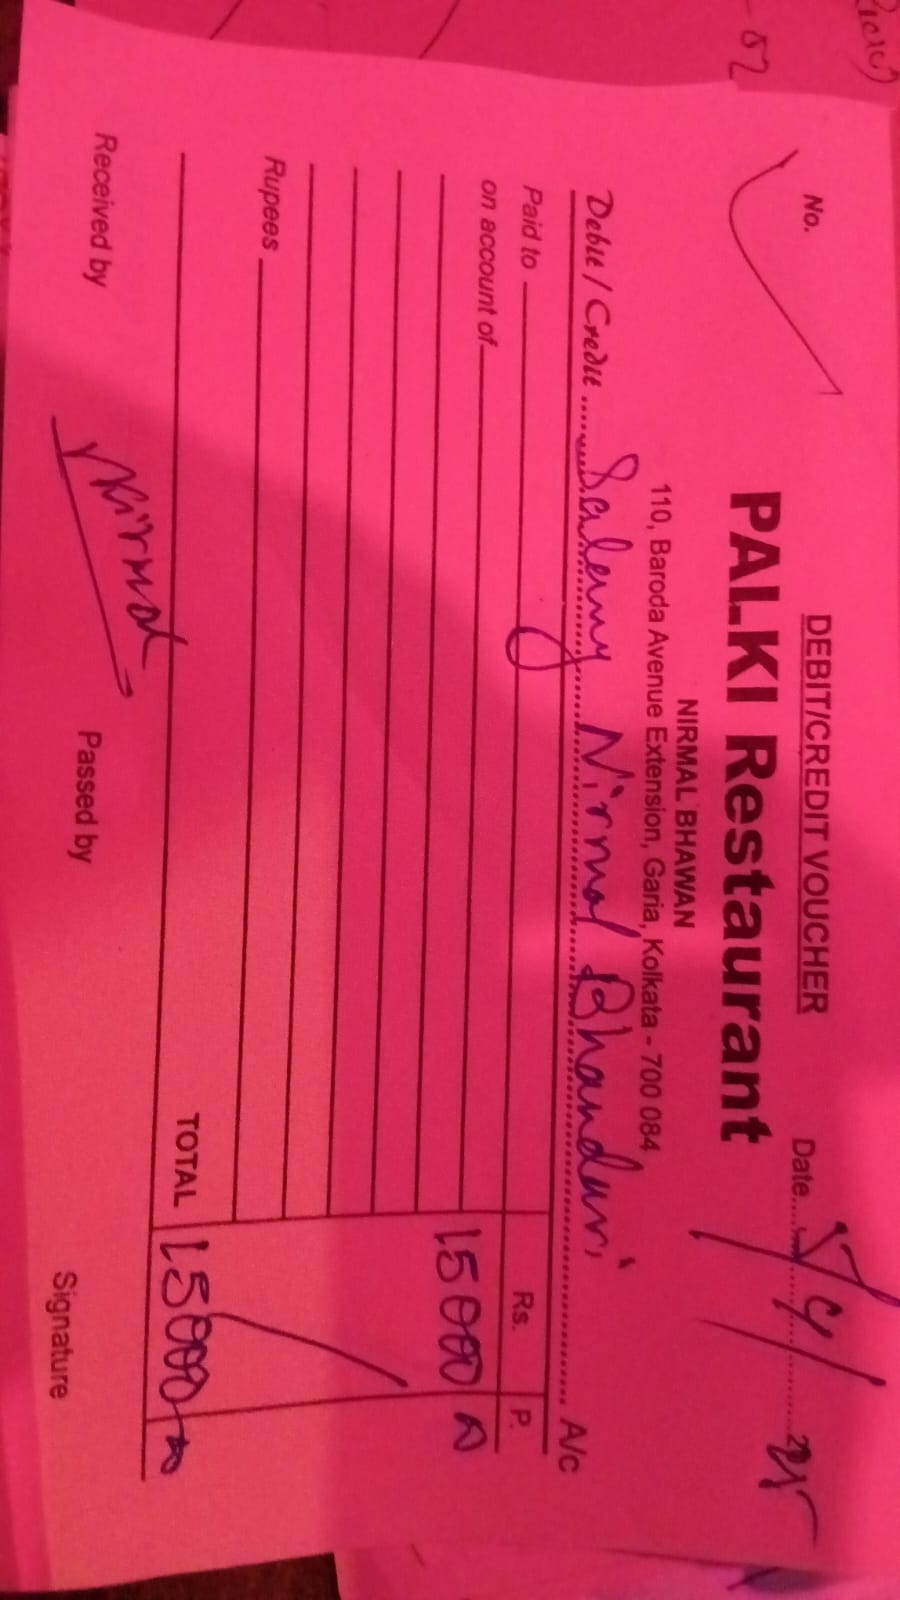 DEBIT/CREDIT VOUCHER
No.
Date
PALKI Restaurant
NIRMAL BHAWAN
110, Baroda Avenue Extension, Garia, Kolkata - 700 084
Debit / Credit Salemy Nirmal Bhandari A/c
Paid to Rs. P.
on account of
15000
Rupees
TOTAL 15000
Nirmal
Received by Passed by Signature